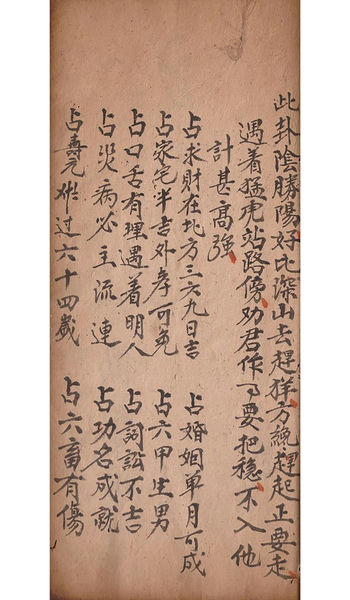 此卦陰勝陽好比深山去趕羊方纔趕起正要走
遇着猛虎站路傍劝君作事要把穩不入他
計甚高強
占求財在北方三六九日吉 占婚姻單月可成
占家宅半吉外孝可免 占六甲生男
占口舌有理遇着明人 占詞訟不吉
占災病必主流連 占功名成就
占壽元难过六十四歲 占六畜有傷